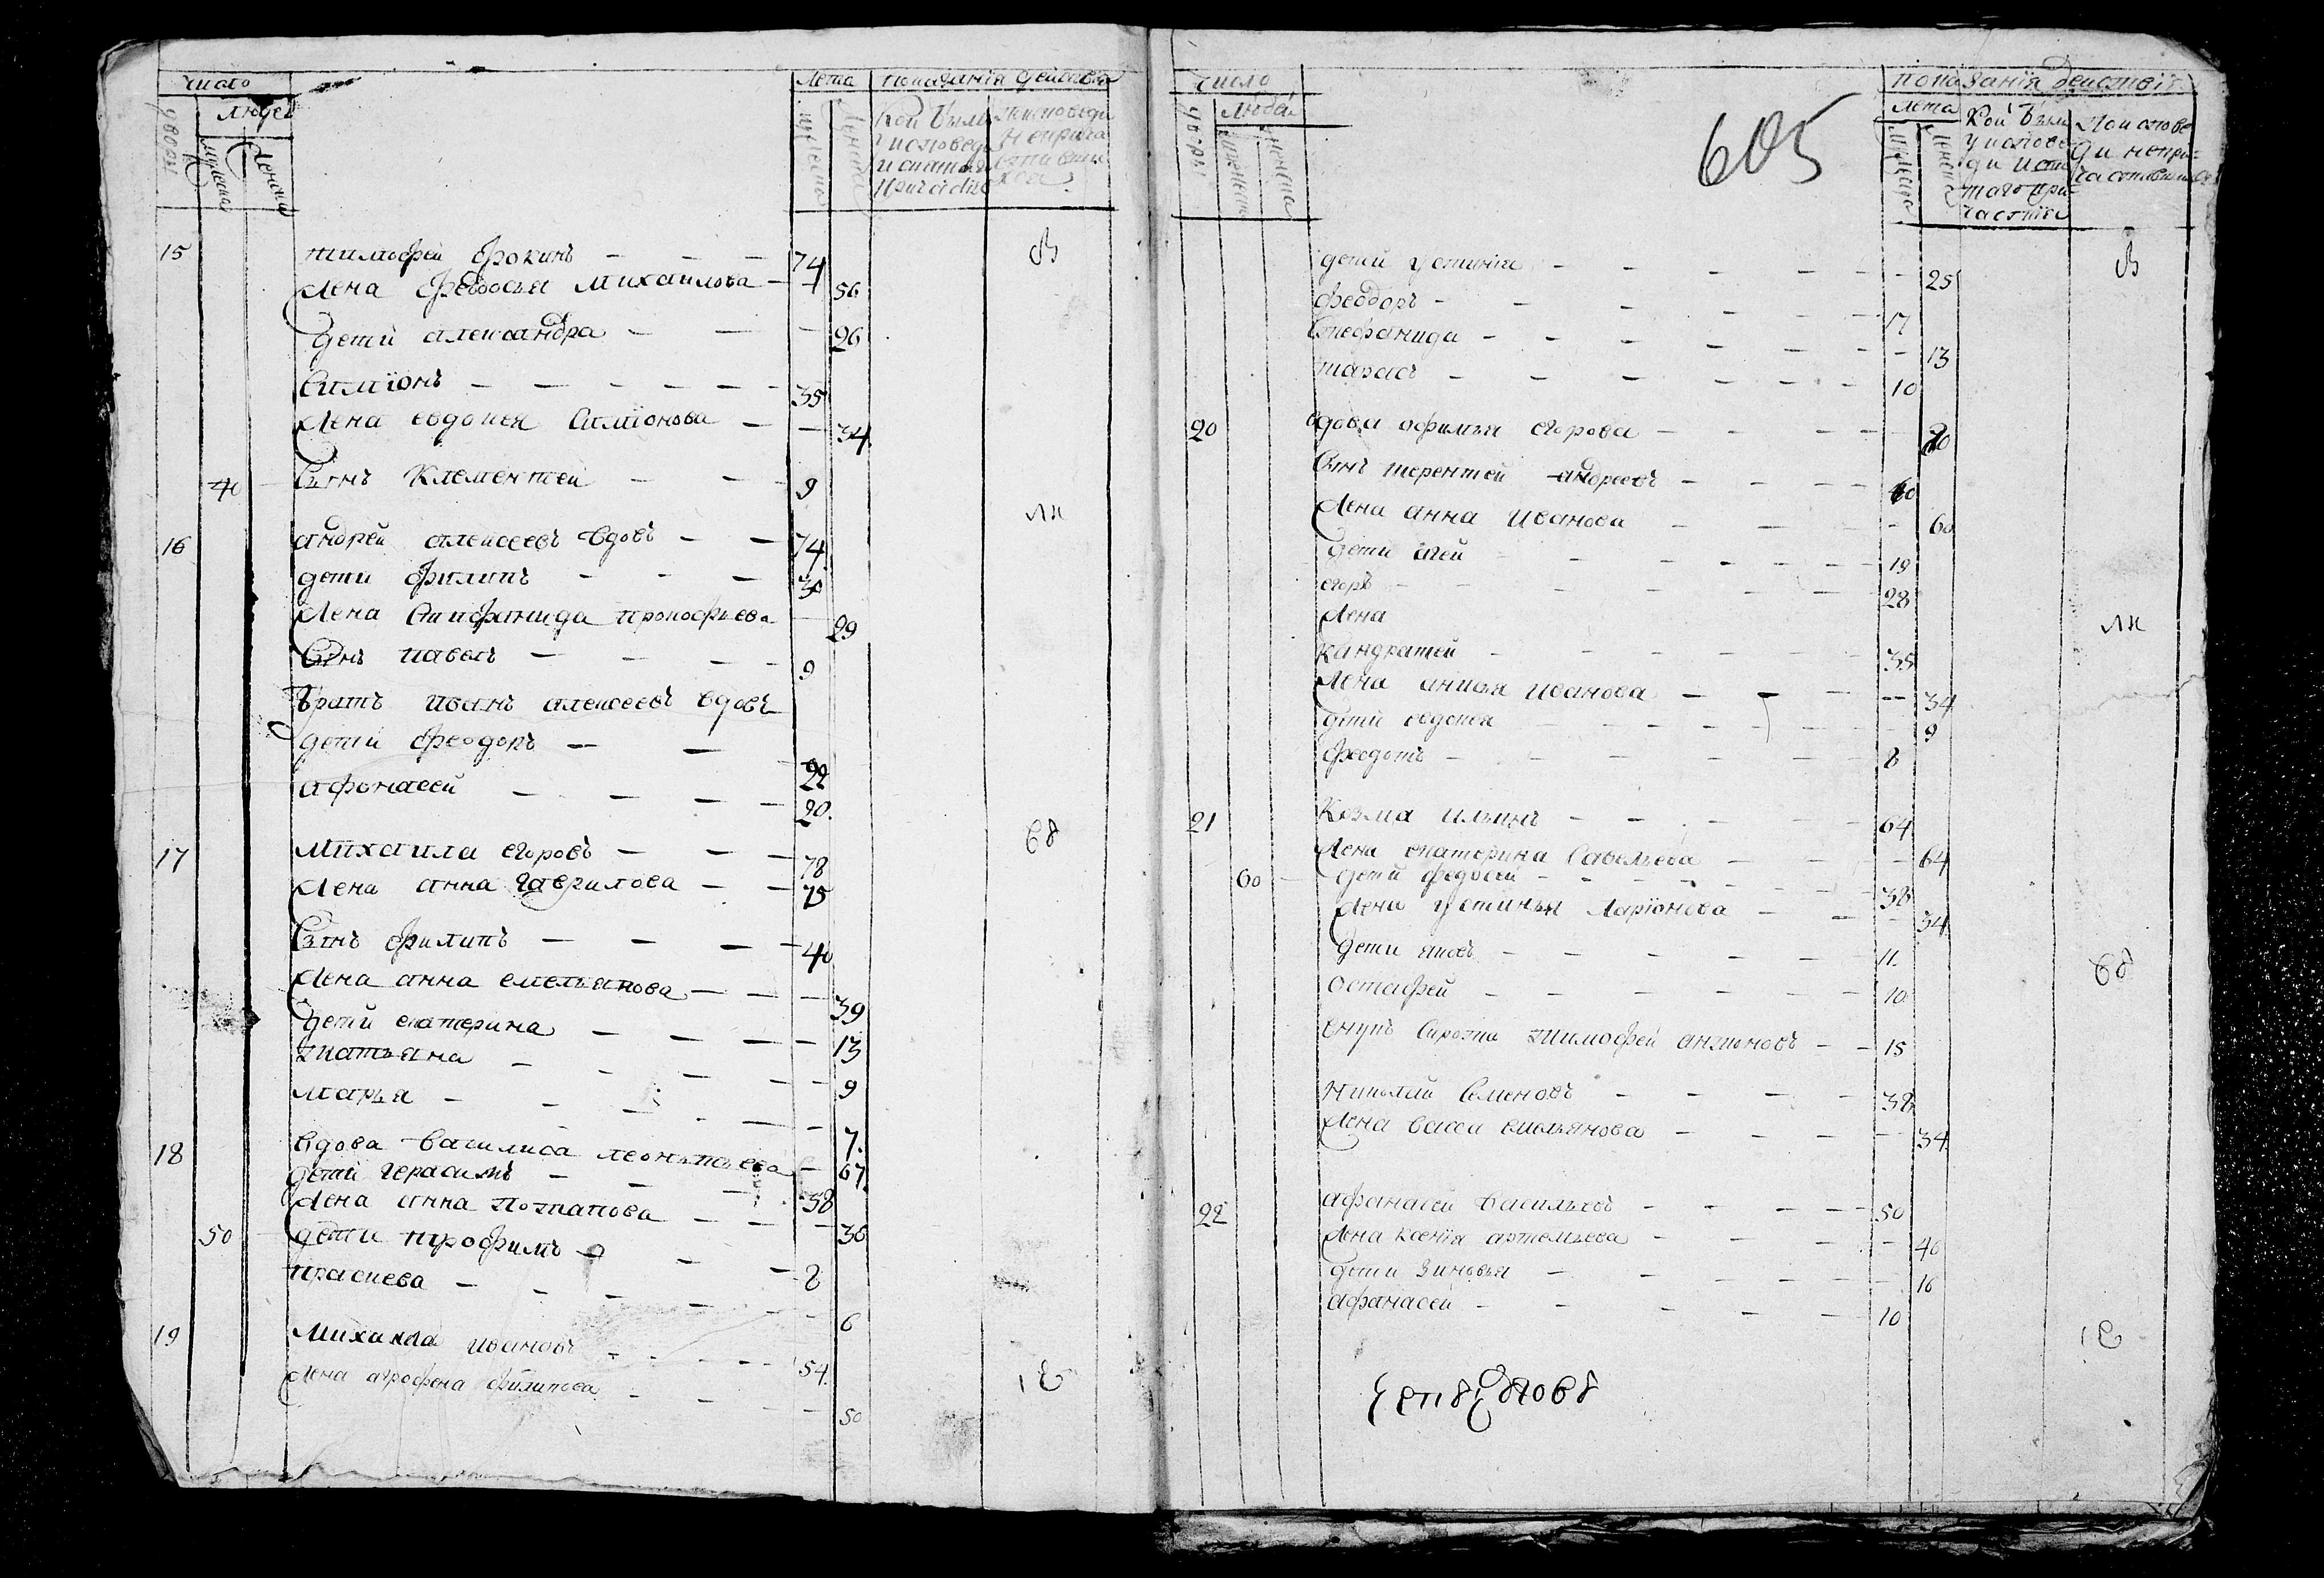 число
Лета показания действа
дворы
людей
мужеска
женска
мужеска
женска
Кои были
у исповеди
и святаго
причастия
15 тимофей фокинъ 74
Жена федосья Михаилова 56
дети александра 26
Симионъ 35
Жена евдокея Симионова 34
40 Сынъ Клементей 9
16 андрей алексеевъ вдовъ 74
дети филипъ 30
Жена Стифанида прокофьева 29
Сынъ павелъ 9
братъ иванъ алексеевъ вдовъ
дети феодоръ 22
афонасей 20
17 Михаила егоровъ 78
Жена анна гаврилова 75
Сынъ филипъ 40
Жена анна емельянова 39
дети екатерина 13
татьяна 9
марья 7
18 вдова василиса леонтьева 67
дети герасимъ 38
Жена анна потапова 36
50 дети трофимъ 8
праскева 6
19 Михаила ивановъ 54
Жена агрофена филипова 50
605
число
показания действiя
дворы
людей
женска
лета
Кои были
у испове
ди и свя
таго при
частiя
По испове
ди непри
частившися
дети устинiя 25
феодоръ 17
Стефанида 13
тарасъ 10
20 вдова офимья егорова
Сынъ терентей андреевъ
Жена анна иванова 60
дети 19
егоръ 28
Жена
кандратей 35
Жена анисья иванова 34
дети евдокея 9
феодотъ 8
21 Козма ильинъ 64
Жена екатерина Савельева 64
60 дети федосей 38
Жена устинья Ларiонова 34
дети яковъ 11
остафей 10
внукъ Сирота тимофей антоновъ 15
николай Семеновъ 38
Жена васса емельянова 34
22 афанасей васильевъ 50
Жена ксенiя артемьева 40
дети Зиновья 16
афанасей 10